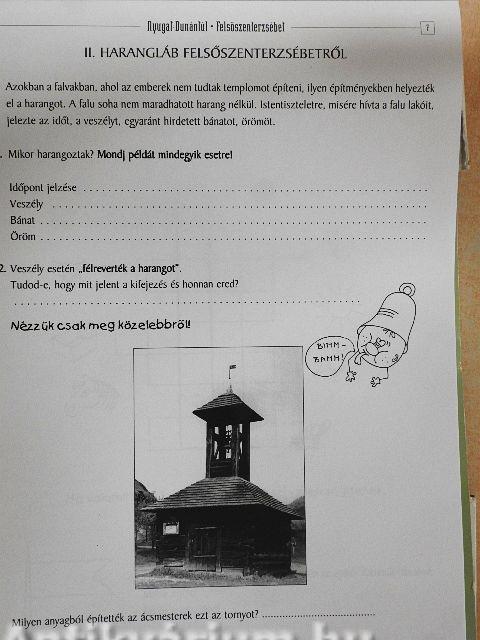 Nyugat-Dunántúl • Felsőszenterzsébet
II. HARANGLÁB FELSŐSZENTERZSÉBETRŐL
Azokban a falvakban, ahol az emberek nem tudtak templomot építeni, ilyen építményekben helyezték
el a harangot. A falu soha nem maradhatott harang nélkül. Istentiszteletre, misére hívta a falu lakóit,
jelezte az időt, a veszélyt, egyaránt hirdetett bánatot, örömöt.
. Mikor harangoztak? Mondj példát mindegyik esetre!
Időpont jelzése
Veszély
Bánat
Öröm
2. Veszély esetén „félreverték a harangot".
Tudod-e, hogy mit jelent a kifejezés és honnan ered?
Nézzük csak meg közelebbről!
BIMM-
BAMM!
Milyen anyagból építették az ácsmesterek ezt az tornyot?